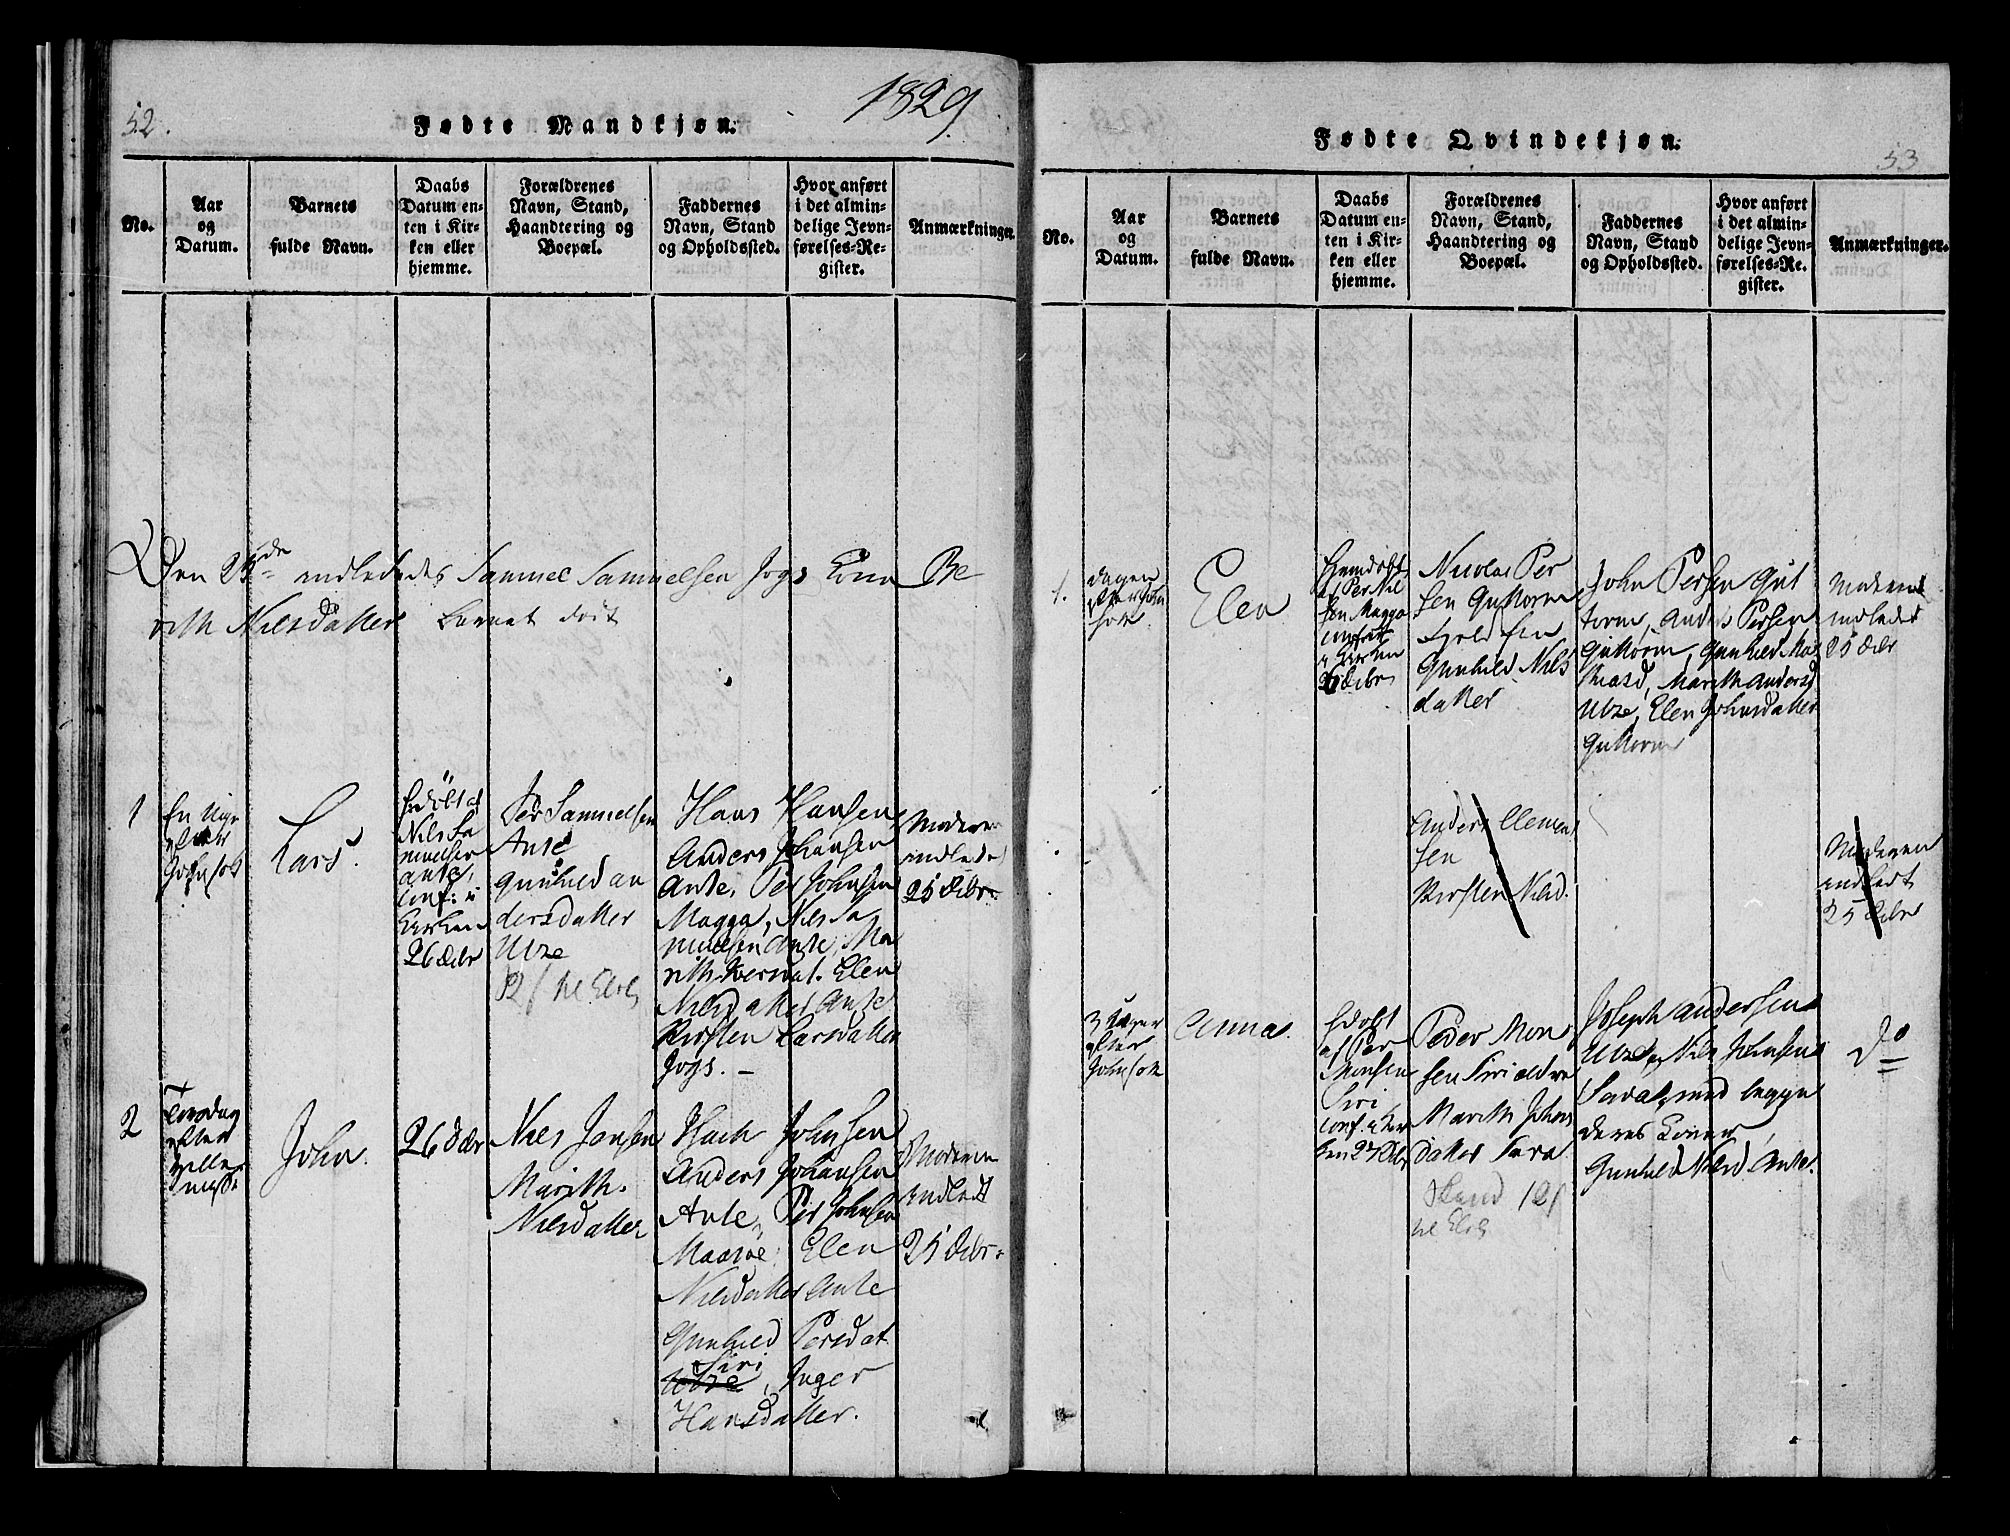 52.
Fødte Mandkjøn.
1829.
No.
Aar
og
Datum.
Barnets
fulde Navn.
Daabs
Datum en-
ten i Kir-
ken eller
hjemme.
Forældrenes
Navn, Stand,
Haandtering og
Boepæl.
Faddernes
Navn, Stand
og Opholdssted.
Hvor anført
i det almin-
delige Jevn-
førelses-Re-
gister.
Anmærkninger.
Den 25de indledes Samuel Samuelsen Jogs Kona Be
rith Nilsdatter Barnet dødt
1
En Uge
efter
Johnsok
Lars.
hdøbt af
Nils Sa
muelsen
Ante,
Conf: i
Kirken
26 Debr
Per Samuelsen
Ante
Gunhild An
dersdatter
Utze
Hans Hansen
Anders Johansen
Ante, Per Johnsen
Magga, Nils Sa
muelsen Ante, Ma
rith Iversdat. Elen
Nilsdatter Ante
Kirsten Larsdatter
Jogs. –
Moderen
indledet
25 Debr
2
Torsdag
efter
Helle
miss
John.
26 Debr
Nils Jonsen
Marith
Nilsdatter
Johnsen
Anders Johansen
Ante, Per Johnsen
Maasøe, Elen
Nilsdatter Ante
Gunhild Persdat
Siri
Utze, Inger
Hansdatter.
Moderen
indledt
25 Debr.
Fødte Qvindekjøn.
53
No.
Aar
og
Datum.
Barnets
fulde Navn.
Daabs
Datum en-
ten i Kir-
ken eller
hjemme.
Forældrenes
Navn, Stand,
Haandtering og
Boepæl.
Faddernes
Navn, Stand
og Opholdssted.
Hvor anført
i det almin-
delige Jevn-
førelses-Re-
gister.
Anmærkninger.
1.
dagen
efter John
sok
Elen
hjemdøbt
af Per Nil
sen Magga
Confirt
i Kirken
26 Debr
Nicolai Per
sen Guttorm
Gunhild Nils
datter
John Persen Gut
torm, Anders Persen
Guttorm, Gunhild Ma
thiasd, Marith Andersd
Utze, Elen Johnsdatter
Guttorm
Moderen
indledet
25 Debr
Anders Clemen
sen
Kirsten Nilsd.
Moderen
indledt
25 Debr
3 Uger
efter
Johnsok
Anna.
hdøbt
af Per
Monsen
Siri
Conf. i Kir
ken 27 Debr
Peder Mon
sen Siri
Marith Johns
datter
Joseph Andersen
Utze, Nils Johnsen
med begge
deres Koner,
Gunhild Nilsd. Ante.
do